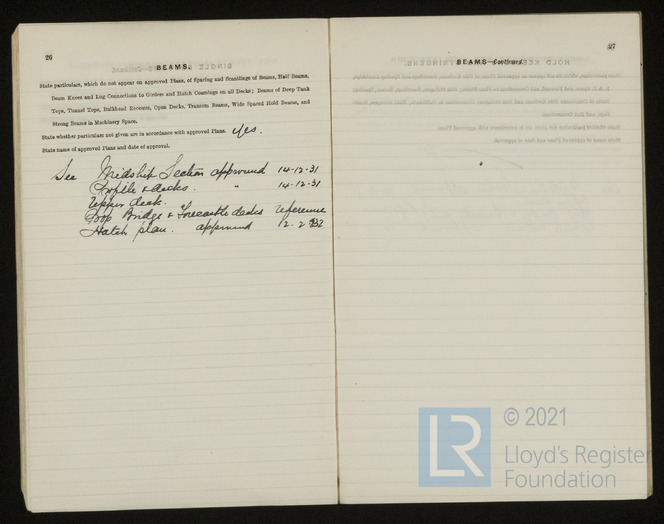 26
BEAMS.
State particulars, which do not appear on approved Plans, of Sparing and Scantlings of Beams, Half Beams,
Beam Knees and Lug Connections to Girders and Hatch Coamings on all Decks; Beams of Deep Tank
Tops, Tunnel Tops, Bulkhead Recesses, Open Decks, Transom Beams, Wide Spaced Hold Beams, and
Strong Beams in Machinery Space.
State whether particulars not given are in accordance with approved Plans. Yes.
State name of approved Plans and date of approval.
See Midship Section approved 14-12-31
Profile & decks. " 14-12-31
Upper deck.
Poop Bridge & Forecastle decks reference
Hatch plan. approved 12-2-32
27
BEAMS—Continued.
LR
© 2021
Lloyd's Register
Foundation